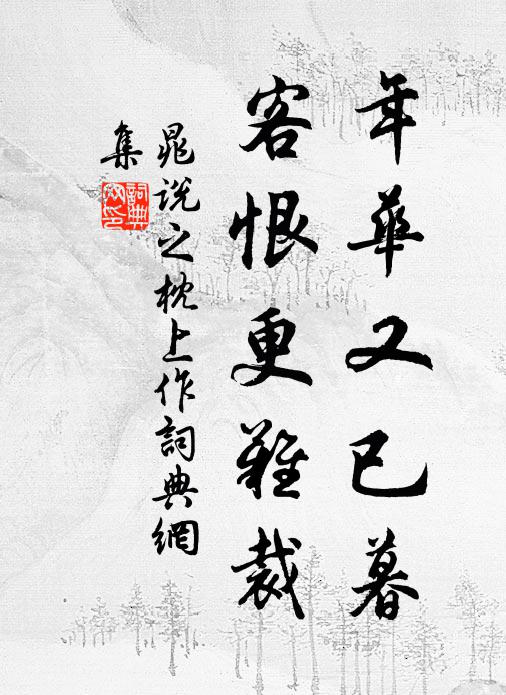 年華又已暮
客恨更難裁
晁説之枕上作詞典網
集
詞典
網印